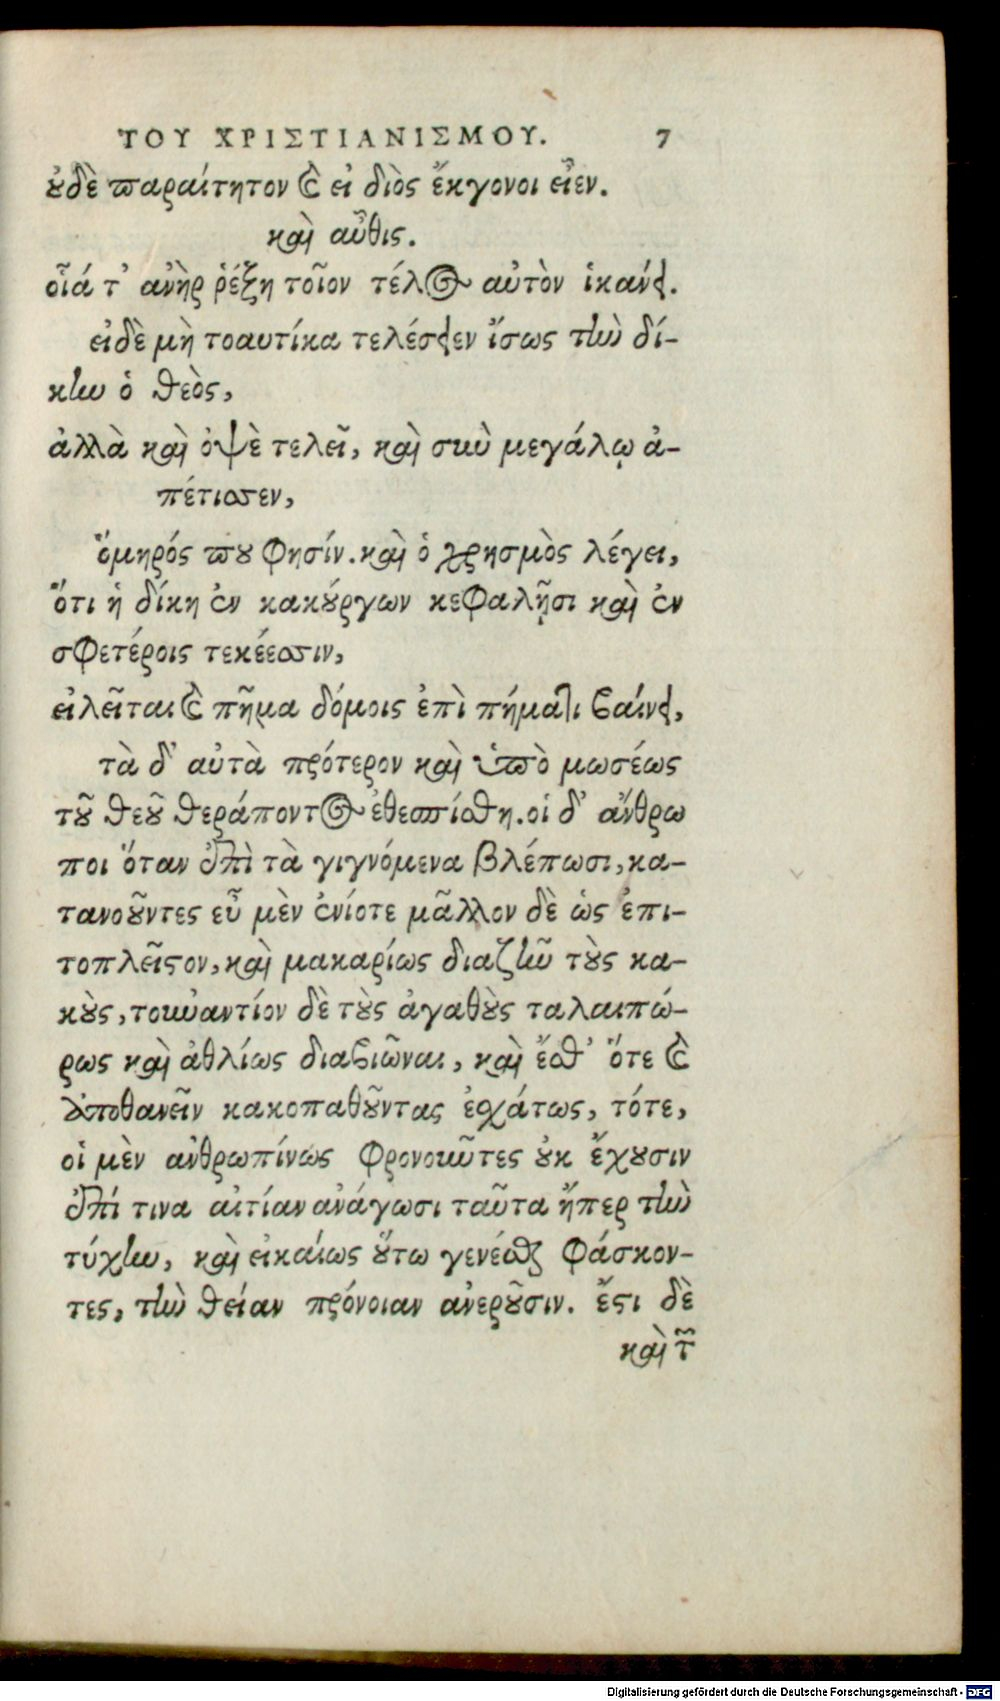 ΤΟΥ ΧΡΙΣΤΙΑΝΙΣΜΟΥ. 7
ȣ̓δὲ παραίτητον καὶ εἰ διὸς ἔκγονοι εἶεν.
καὶ αὖθις.
οἷά τ' ἀνὴρ ῥέξη τοῖον τέλος αὐτὸν ἱκάνει.
εἰδὲ μὴ τοαυτίκα τελέσειεν ἴσως τὴν δί-
κην ὁ θεὸς,
ἀλλὰ καὶ ὀψὲ τελεῖ, καὶ σὺν μεγάλῳ ἀ-
πέτισσεν,
ὅμηρός πȣ φησίν. καὶ ὁ χρησμὸς λέγει,
ὅτι ἡ δίκη ἐν κακȣ́ργων κεφαλῇσι καὶ ἐν
σφετέροις τεκέεσσιν,
εἰλεῖται καὶ πῆμα δόμοις ἐπὶ πήματι βαίνει,
τὰ δ' αὐτὰ πρότερον καὶ ὑπὸ μωσέως
τȣ͂ θεȣ͂ θεράποντος ἐθεσπίσθη. οἱ δ' ἄνθρω
ποι ὅταν ἐπὶ τὰ γιγνόμενα βλέπωσι, κα-
τανοȣ͂ντες εὖ μὲν ἐνίοτε μᾶλλον δὲ ὡς ἐπι-
τοπλεῖστον, καὶ μακαρίως διαζῆν τȣ̀ς κα-
κȣ̀ς, τοὐναντίον δὲ τȣ̀ς ἀγαθȣ̀ς ταλαιπώ-
ρως καὶ ἀθλίως διαβιῶναι, καὶ ἔσθ' ὅτε καὶ
ἀποθανεῖν κακοπαθȣ͂ντας ἐσχάτως, τότε,
οἱ μὲν ἀνθρωπίνως φρονοῦντες ȣ̓κ ἔχȣσιν
ἐπί τινα αἰτίαν ἀνάγωσι ταῦτα ἤπερ τὴν
τύχην, καὶ εἰκαίως ȣ̔́τω γενέσθαι φάσκον-
τες, τὴν θείαν πρόνοιαν ἀνερȣ͂σιν. ἔστι δὲ
καὶ τ͂
Digitalisierung gefördert durch die Deutsche Forschungsgemeinschaft - DFG